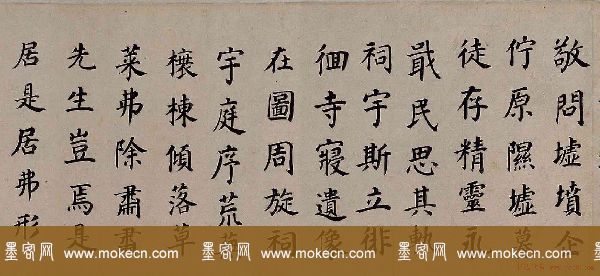 敬問墟墳企
佇原隰墟墓
徒存精靈永
戢民思其軌
祠宇斯立徘
徊寺寢遺像
在圖周旋祠
宇庭序荒蕪
榱棟傾落草
萊弗除肅肅
先生豈焉是
居是居弗形
墨客网 www.mokecn.com 墨客网 www.mokecn.com 墨客网 www.mokecn.com